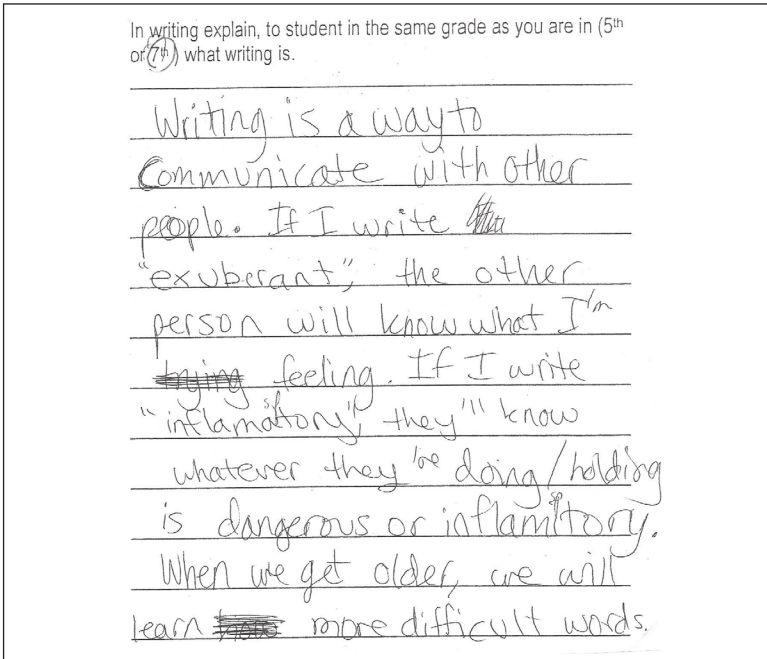 In writing explain, to student in the same grade as you are in (5th
or 7th) what writing is.
Writing is a way to
Communicate with other
people. If I write
"exuberant", the other
person will know what I'm
trying feeling. If I write
"inflamatory", they'll know
whatever they're doing/holding
is dangerous or inflamitory.
When we get older, we will
learn more difficult words.